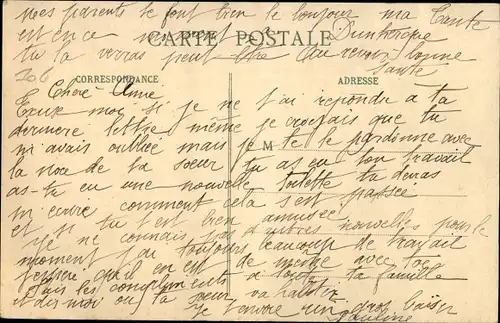 mes parents te font bien le bonjour ma tante
est en ce moment Dunkerque
CARTE POSTALE
tu la verras peut être Au revoir bonne
santé
CORRESPONDANCE
ADRESSE
Chère Amie
Excuse moi si je ne t'ai répondu à ta
dernière lettre même je croyais que tu
m'avais oubliée mais je te le pardonne avec
M
la noce de ta soeur tu as eu ton travail
as-tu eu une nouvelle toilette tu devras
m'écrire comment cela s'est passée
et si tu t'est bien amusée
je ne connais pas d'autres nouvelles pour le
moment j'ai toujours beaucoup de travail
j'espère qu'il en est de même avec toi
Fais les compliments à toute ta famille
et dis moi où ta soeur va habiter
Je t'envoie un gros baiser
Pauline